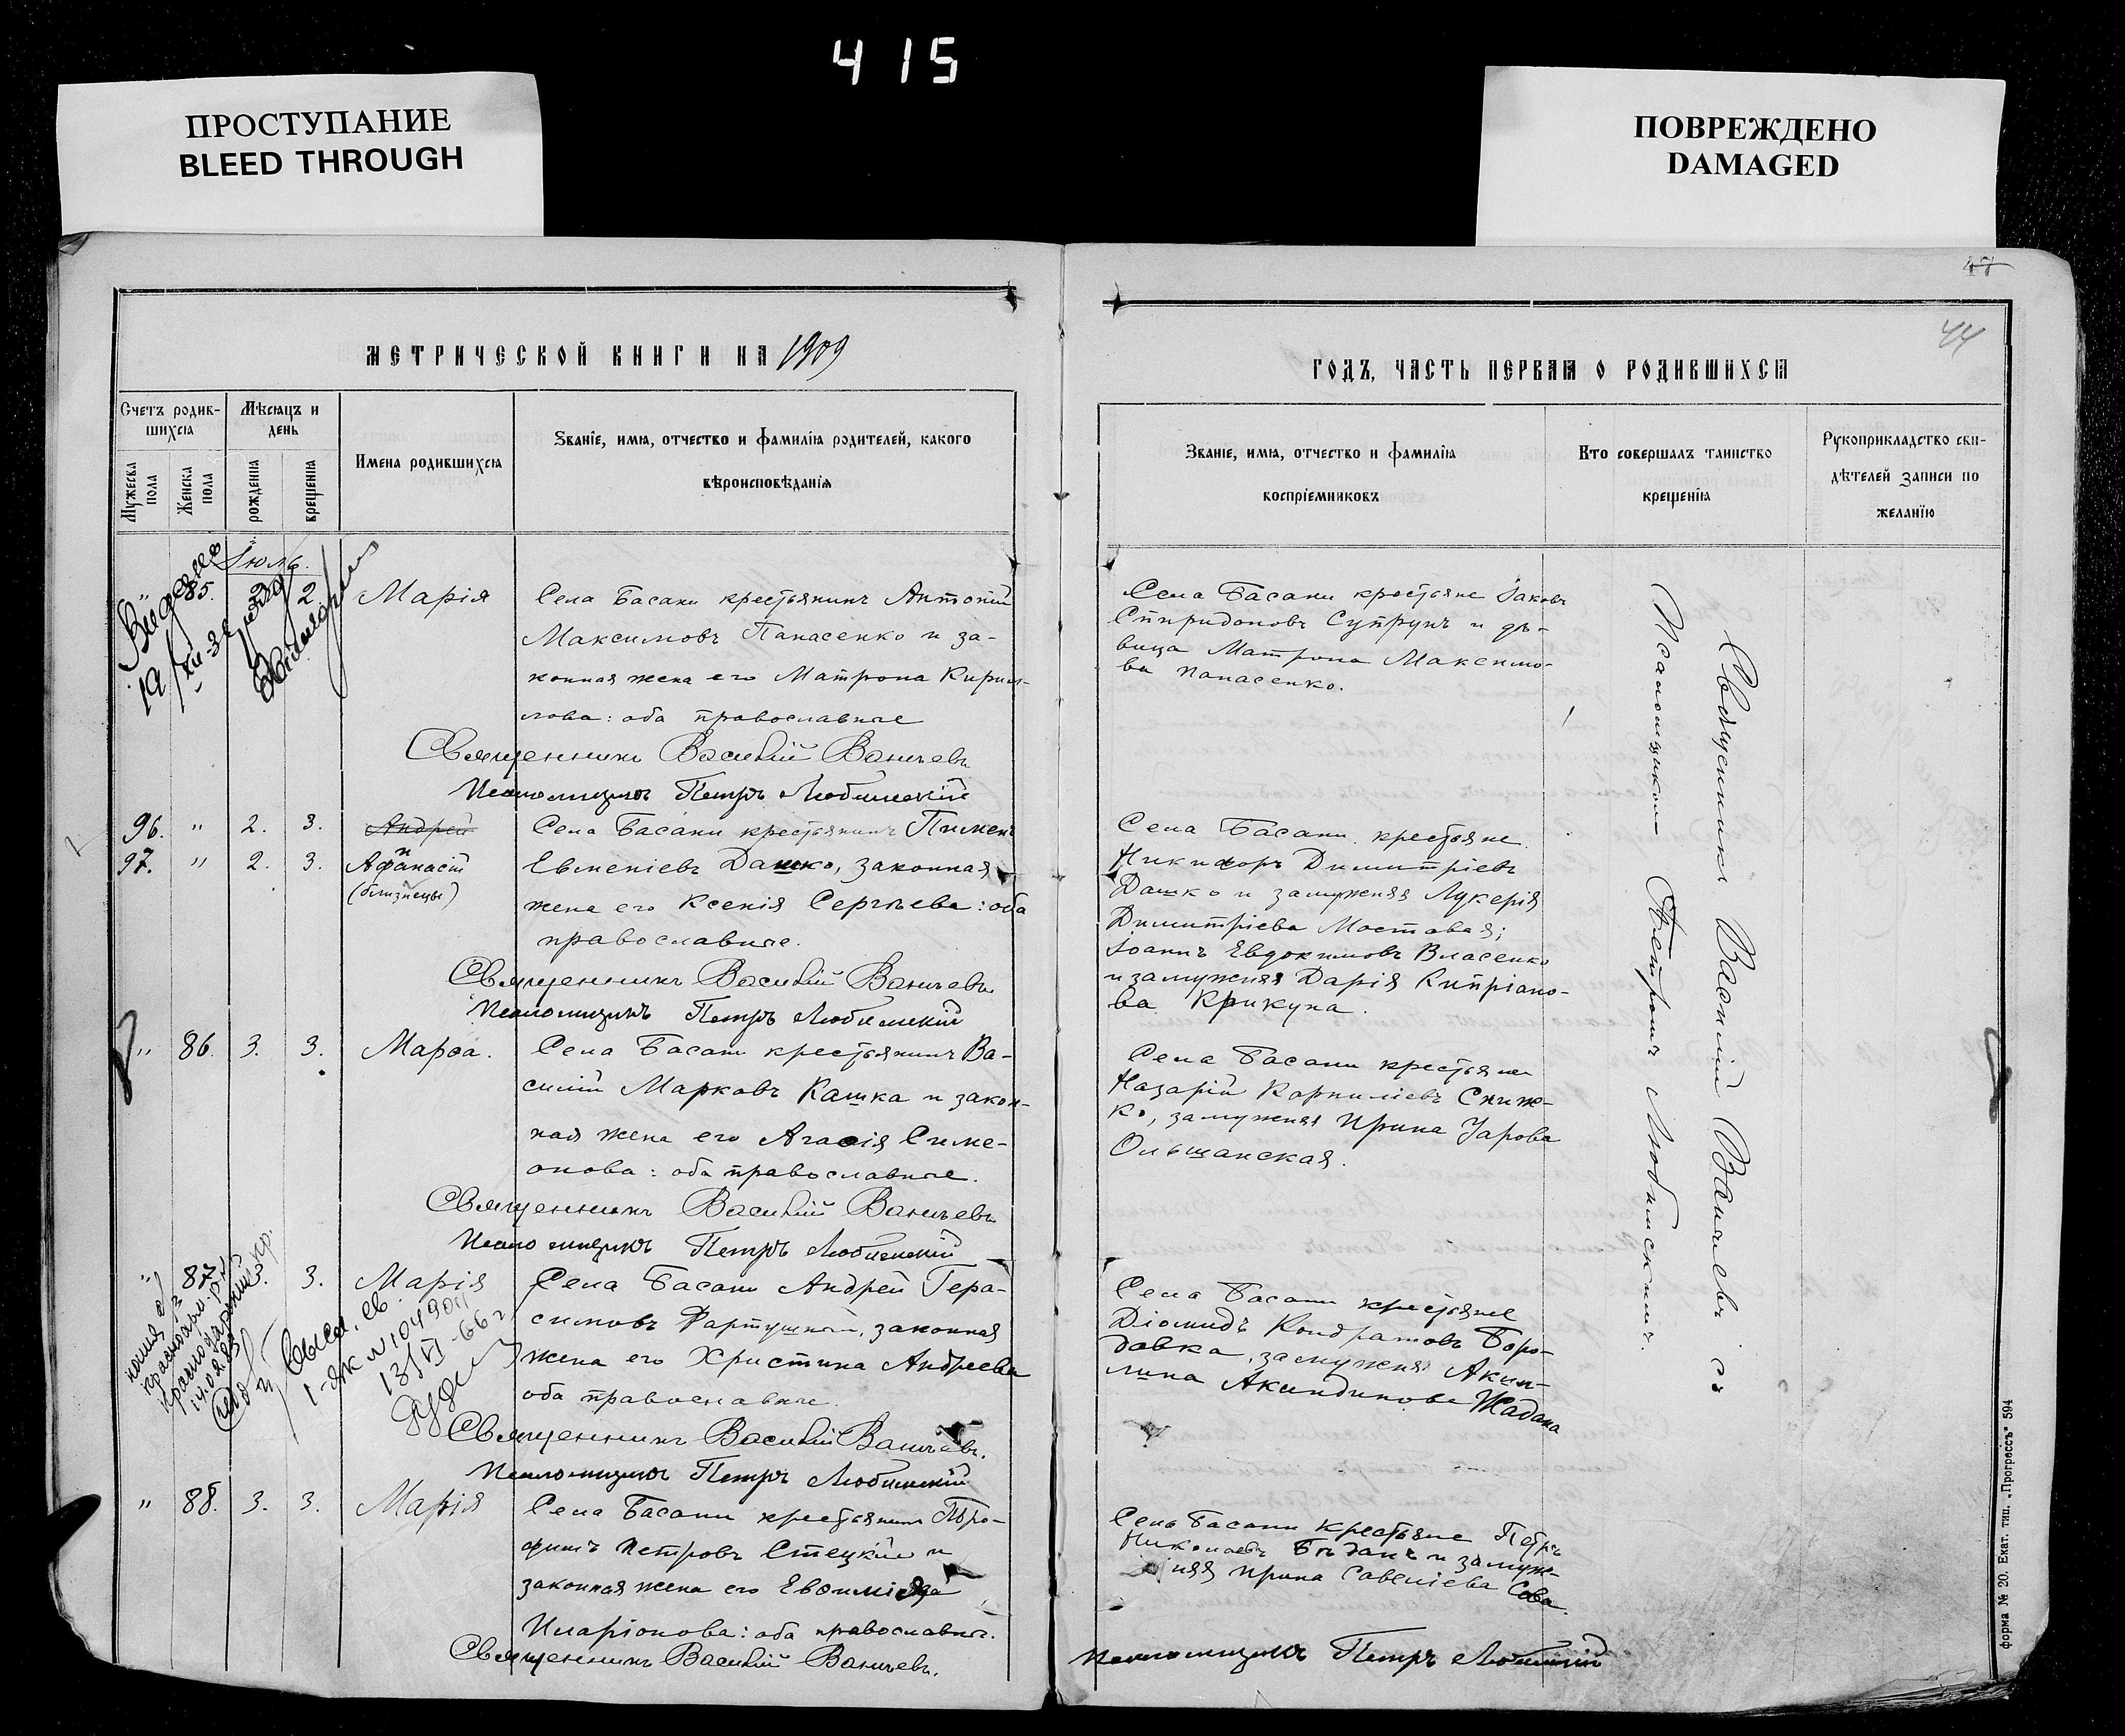 415
ПРОСТУПАНИЕ
BLEED THROUGH
ПОВРЕЖДЕНО
DAMAGED
МЕТРИЧЕСКОЙ КНИГИ НА 1909
Счетъ родив-
шихся
Мужеска
пола
Женска
пола
Мѣсяцъ и
день
рожденія
крещенія
Имена родившихся
Званіе, имя, отчество и фамилія родителей, какого
вѣроисповѣданія
Іюль.
" 85. 2 2 Марія
Села Басани крестьянинъ Антоній
Максимовъ Панасенко и за-
конная жена его Матрона Кирил-
лова: оба православные
Священникъ Василій Ваничевъ
Псаломщикъ Петръ Любимскій
96. " 2. 3. Андрей
97. " 2. 3. Афанасій
(близнецы)
Села Басани крестьянинъ Пименъ
Евменіевъ Дашко, законная
жена его Ксенія Сергѣева: оба
православные.
Священникъ Василій Ваничевъ
Псаломщикъ Петръ Любимскій
" 86. 3. 3. Марѳа.
Села Басани крестьянинъ Ва-
силій Марковъ Кашка и закон-
ная жена его Агаѳія Симе-
онова: оба православные.
Священникъ Василій Ваничевъ
Псаломщикъ Петръ Любимскій
" 87. 3. Марія
Села Басани Андрей Гера-
симовъ законная
жена его Христина Андреева
оба православные.
Священникъ Василій Ваничевъ.
Псаломщикъ Петръ Любимскій
13/VI-66 г.
" 88. 3. 3. Марія
Села Басани крестьянинъ Тро-
фимъ Петровъ Стецкій и
законная жена его Евѳимія
Иларіонова: оба православные.
Священникъ Василій Ваничевъ.
47
44
ГОДЪ, ЧАСТЬ ПЕРВАЯ О РОДИВШИХСЯ
Званіе, имя, отчество и фамилія
воспріемниковъ
Кто совершалъ таинство
крещенія
Рукоприкладство сви-
дѣтелей записи по
желанію
Села Басани крестьяне Іаковъ
Спиридоновъ Супрунъ и дѣ-
вица Матрона Максимо-
ва Панасенко.
Села Басани крестьяне
Никифоръ Димитріевъ
Дашко и замужняя Лукерія
Димитріева Мостовая;
Іоаннъ Евдокимовъ Власенко
и замужняя Дарія Кипріано-
ва Крикуна.
Села Басани крестьяне
Назарій Корниліевъ Сниж-
ко, замужняя Ирина Уарова
Ольшанская.
Села Басани крестьяне
Діомидъ Кондратовъ Боро-
давка, замужняя Аки-
лина Акиндинова Жадана
Села Басани крестьяне Петръ
Николаевъ Бѣданъ и замуж-
няя Ирина Савеліева Сова.
Псаломщикъ Петръ Любимскій
Священникъ Василій Ваничевъ съ
Псаломщикомъ Петромъ Любимскимъ.
форма № 20. Екат. тип. „Прогрессъ" 594